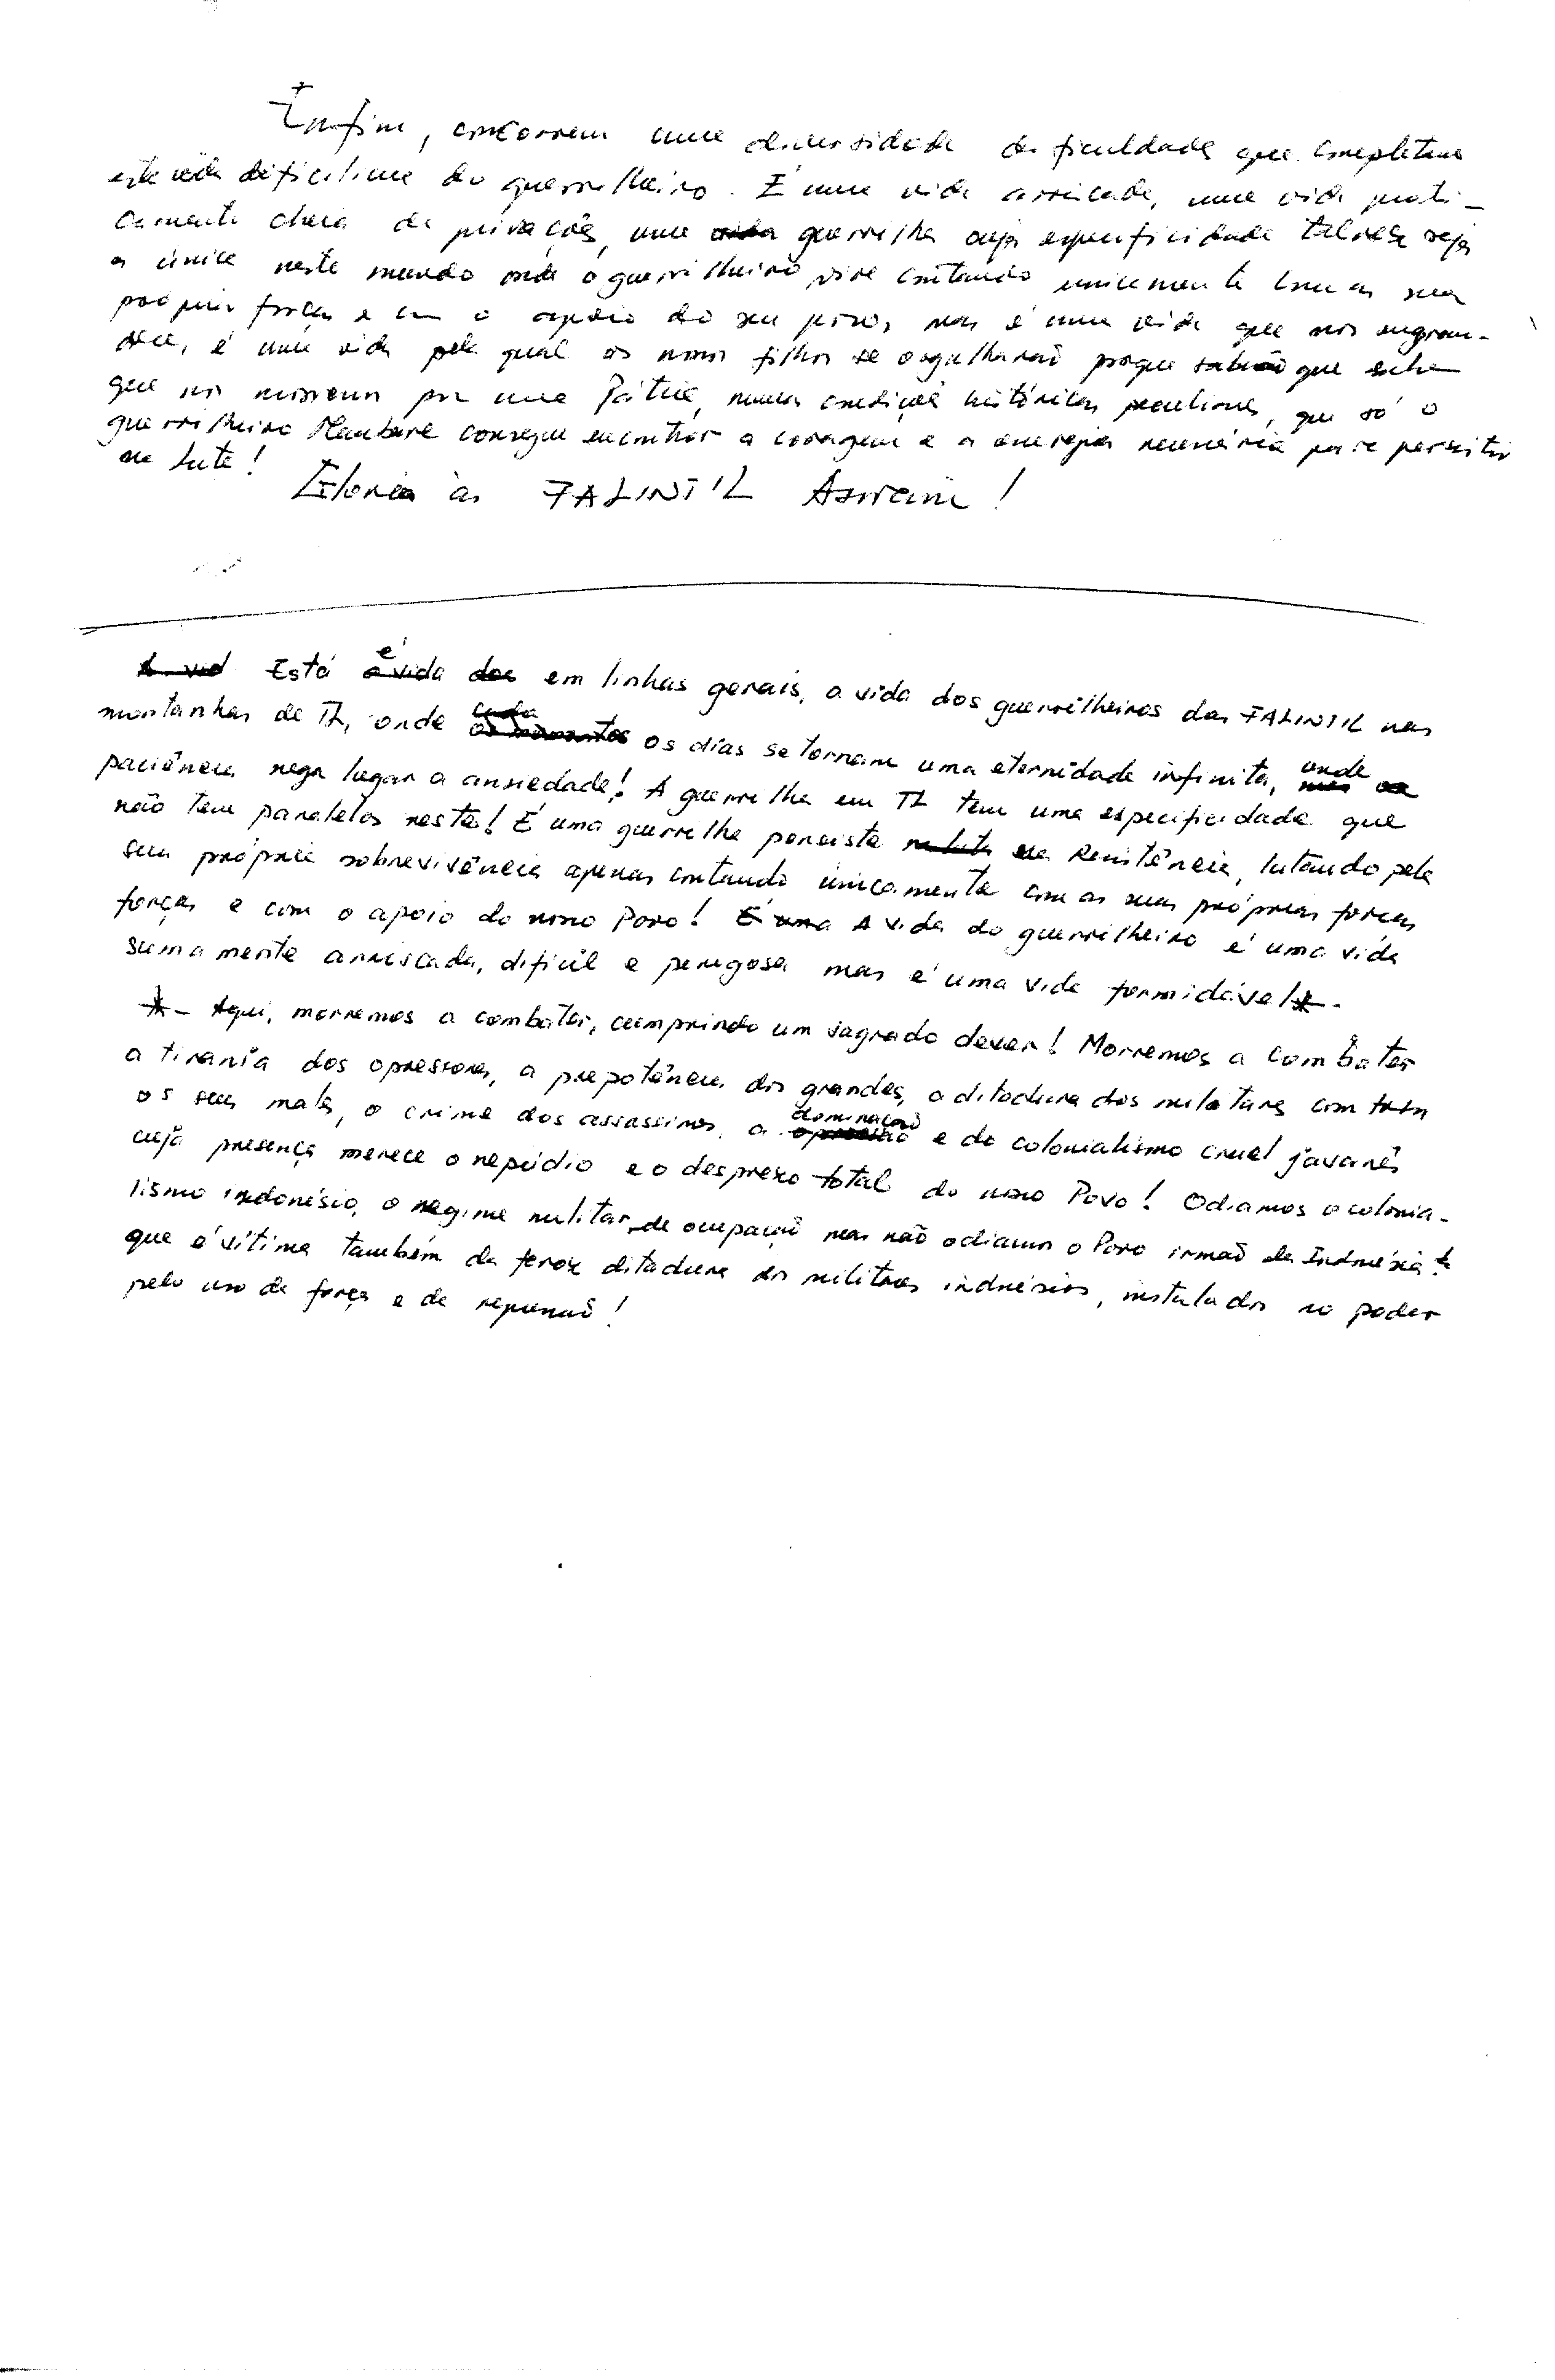 Enfim, concorrem uma diversidade de ficuldades que completam
esta vida dificílima do guerrilheiro. É uma vida arriscada, uma vida prati-
camente cheia de privações, uma vida guerrilha cuja especificidade talvez seja
a única neste mundo onde o guerrilheiro vive contando unicamente com as suas
próprias forças e com o apoio do seu povo, mas é uma vida que nos engran-
dece, é uma vida pela qual os nossos filhos se orgulharão porque saberão que
que nós morremos por uma Pátria, numas condições históricas peculiares, que só o
guerrilheiro Maubere consegue encontrar a coragem e a energia necessária para persistir
na luta!
Glória às FALINTIL Asswain!
A vid Está é a vida dos em linhas gerais, a vida dos guerrilheiros das FALINTIL nas
montanhas de TL, onde cada os momentos os dias se tornam uma eternidade infinita, onde mas a
paciência nega lugar a ansiedade! A guerrilha em TL tem uma especificidade que
não tem paralelos nesta! É uma guerrilha persiste na luta na Resistência, lutando pela
sua própria sobrevivência apenas contando únicamente com as suas próprias forças
forças e com o apoio do nosso Povo! É uma A vida do guerrilheiro é uma vida
sumamente arriscada, difícil e perigosa mas é uma vida formidável *-
*- Aqui, morremos a combater, cumprindo um sagrado dever! Morremos a combater
a tirania dos opressores, a prepotência dos grandes, a ditadura dos militares com todos
os seus males, o crime dos assassinos, a dominação opressão e do colonialismo cruel javanês
cuja presença merece o repúdio e o desprezo total do nosso Povo! Odiamos o colonia-
lismo indonésio, o regime militar de ocupação mas não odiamos o Povo irmão da Indonésia
que é vítima também da feroz ditadura dos militares indonésios, instalados no poder
pelo uso da força e da repressão!